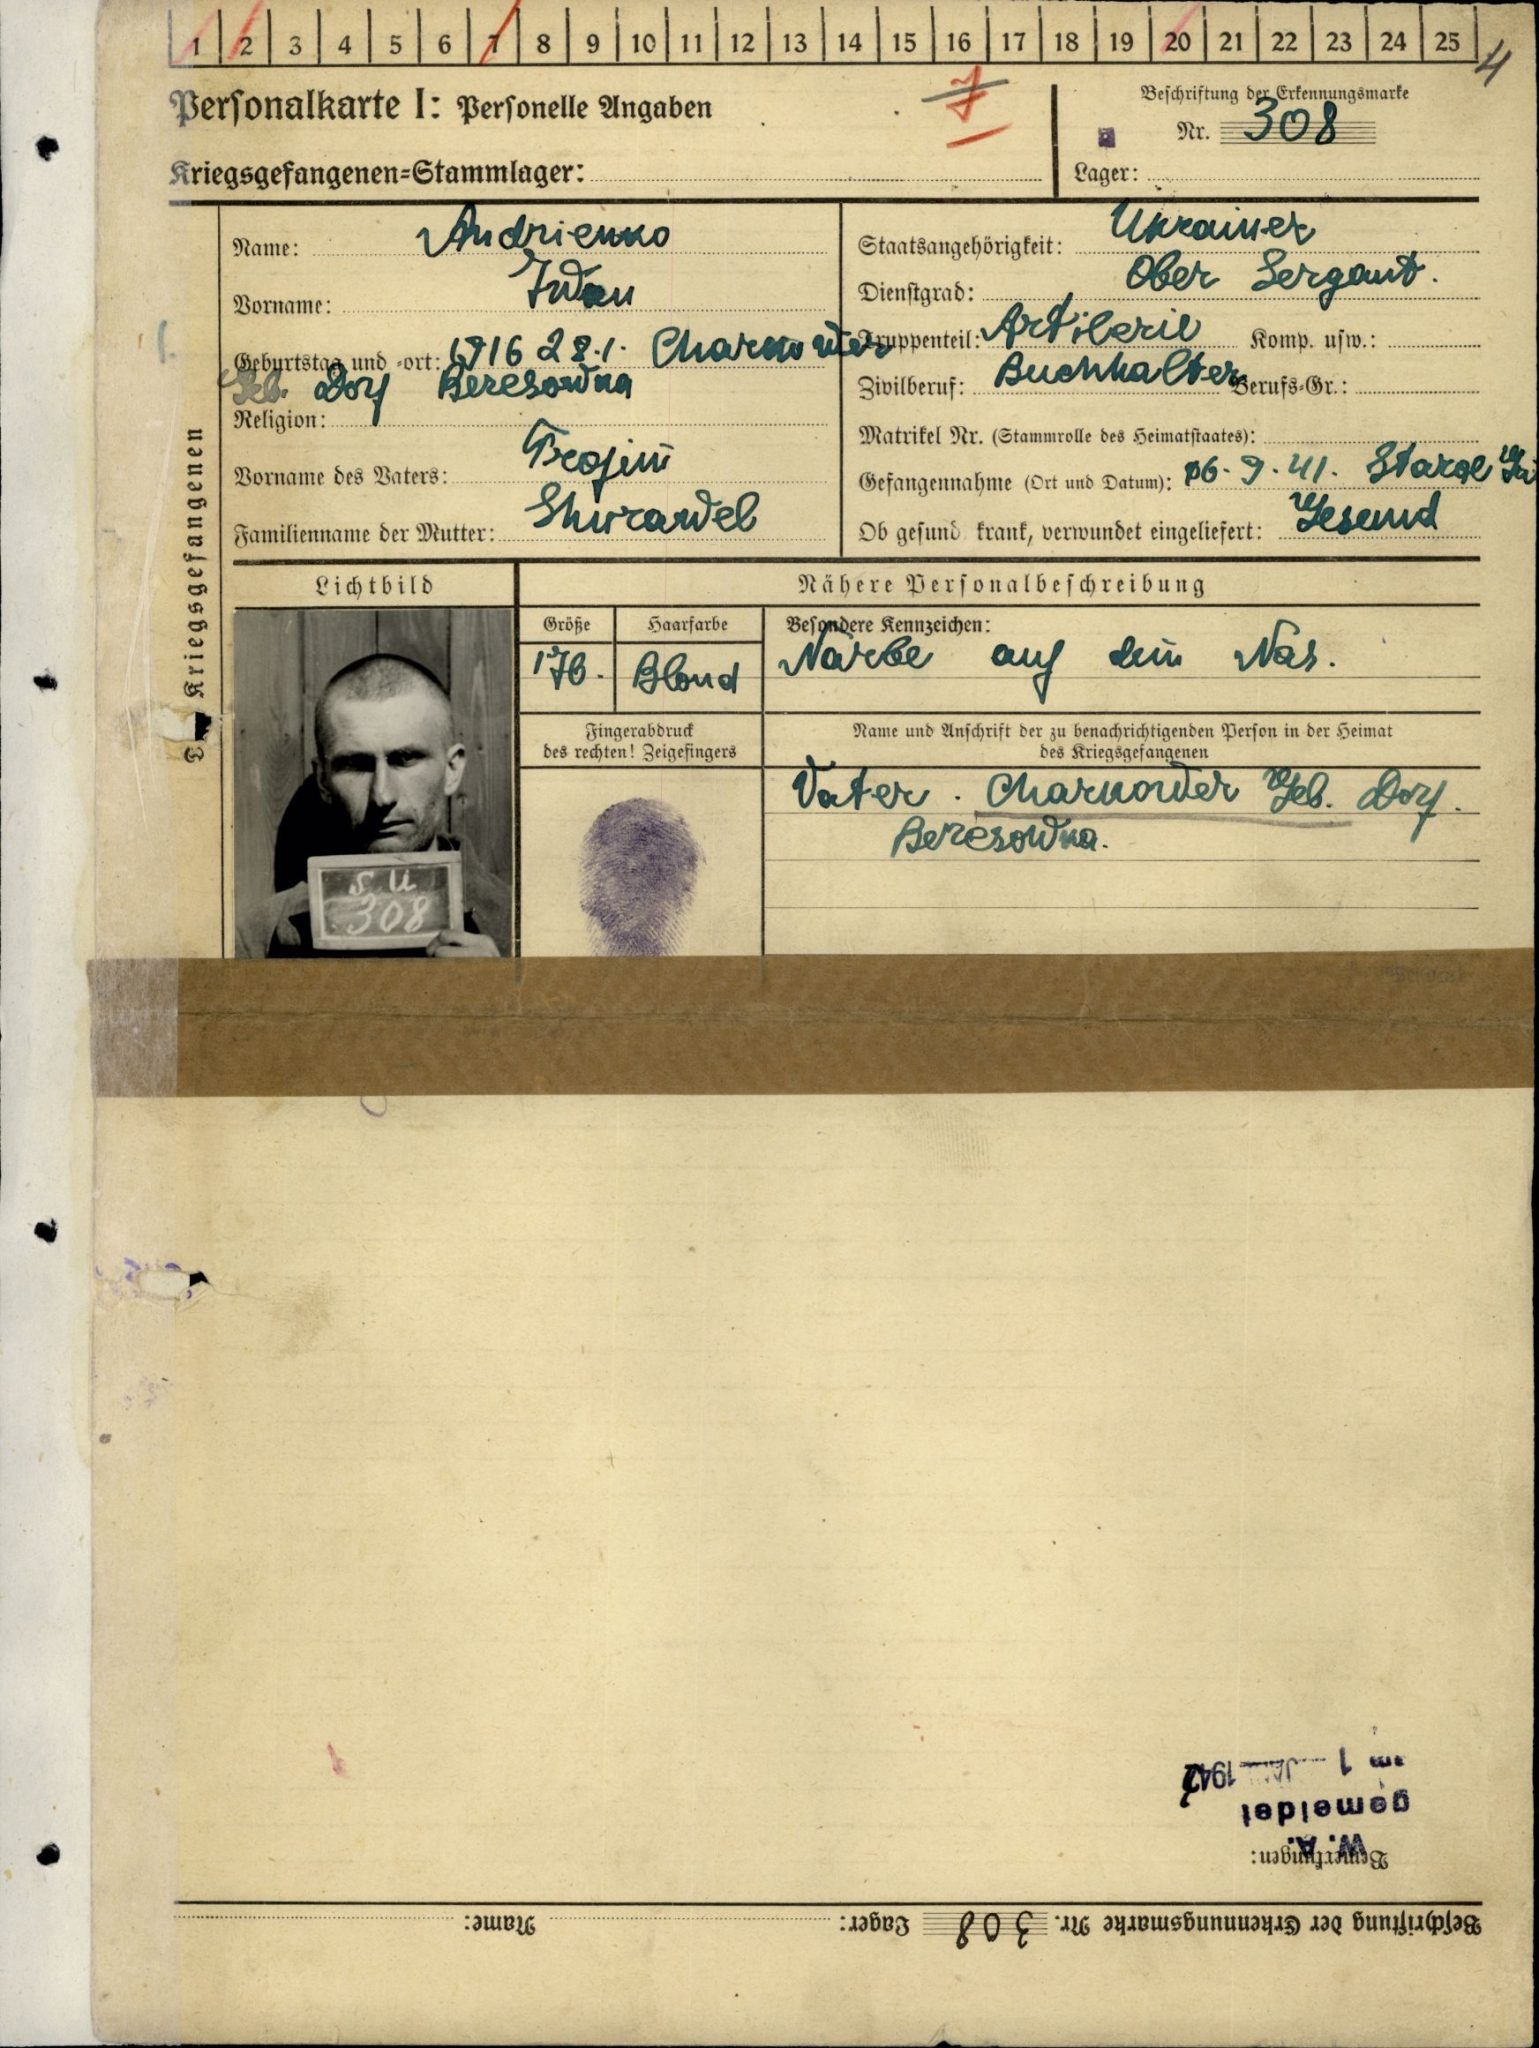 1 2 3 4 5 6 7 8 9 10 11 12 13 14 15 16 17 18 19 20 21 22 23 24 25
4
Personalkarte I: Personelle Angaben
7
Beschriftung der Erkennungsmarke
Nr. 308
Kriegsgefangenen-Stammlager:
Lager:
Des Kriegsgefangenen
Name: Andrienko
Vorname: Iwan
Geburtstag und -ort: 1916 28.1. Charkower
Geb. Dorf Beresowka
Religion:
Vorname des Vaters: Trofim
Familienname der Mutter: Shurawel
Staatsangehörigkeit: Ukrainer
Dienstgrad: Ober Sergant.
Truppenteil: Artilerie Komp. usw.:
Zivilberuf: Buchhalter Berufs-Gr.:
Matrikel Nr. (Stammrolle des Heimatstaates):
Gefangennahme (Ort und Datum): 16.9.41.
Ob gesund, krank, verwundet eingeliefert: Gesund
Lichtbild
Nähere Personalbeschreibung
Größe
Haarfarbe
Besondere Kennzeichen:
176.
Blond
Narbe auf dem Nas.
Fingerabdruck
des rechten! Zeigefingers
Name und Anschrift der zu benachrichtigenden Person in der Heimat
des Kriegsgefangenen
Vater. Charkower Geb. Dorf.
Beresowka.
S.U.
308
Beschriftung der Erkennungsmarke Nr. 308 Lager: Name:
Bemerkungen:
W. A.
gemeldet
am 1 JAN. 1942